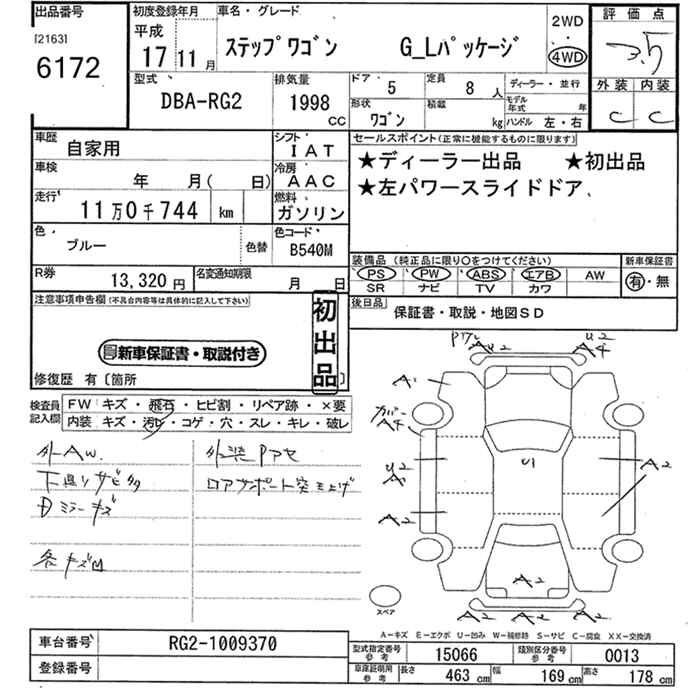 出品番号 初度登録年月 車名・グレード 2WD 評価点
[2163] 平成 ステップワゴン G_Lパッケージ 4WD 3.5
6172 17 11 月 外装 内装
型式 排気量 ドア 5 定員 8 人 ディーラー・並行 C C
DBA-RG2 1998 cc 形状 ワゴン 積載 kg モデル年式 年
ハンドル 左・右
車歴 自家用 シフト IAT セールスポイント(正常に機能するものに限ります)
車検 年 月( 日) 冷房 AAC ★ディーラー出品 ★初出品
走行 11万0千744 km 燃料 ガソリン ★左パワースライドドア、
色 ブルー 色替 色コード B540M
装備品 (純正品に限り○をつけてください) 新車保証書
R券 13,320円 名変通知期限 月 日 PS PW ABS エアB AW 有・無
SR ナビ TV カワ
注意事項申告欄(不具合内容等は具体的に記入して下さい) 初出品 後日品 保証書・取説・地図SD
新車保証書・取説付き
修復歴 有〔箇所 〕
検査員記入欄 FW キズ・飛石・ヒビ割・リペア跡・×要
内装 キズ・汚レ・コゲ・穴・スレ・キレ・破レ
外AW. 外装Pアセ
下廻りサビ多 ロアサポート突上げ
ミラーキズ
各キズ凹
U2
A2 A4
A1
カバー
A4
U1
U2
A1
A2
A2
A2
A2 A2 A2
スペア
A-キズ E-エクボ U-凹み W-補修跡 S-サビ C-腐食 XX-交換済
車台番号 RG2-1009370
登録番号
型式指定番号 参考 15066 類別区分番号 参考 0013
車庫証明用 参考 長さ 463 cm 幅 169 cm 高さ 178 cm